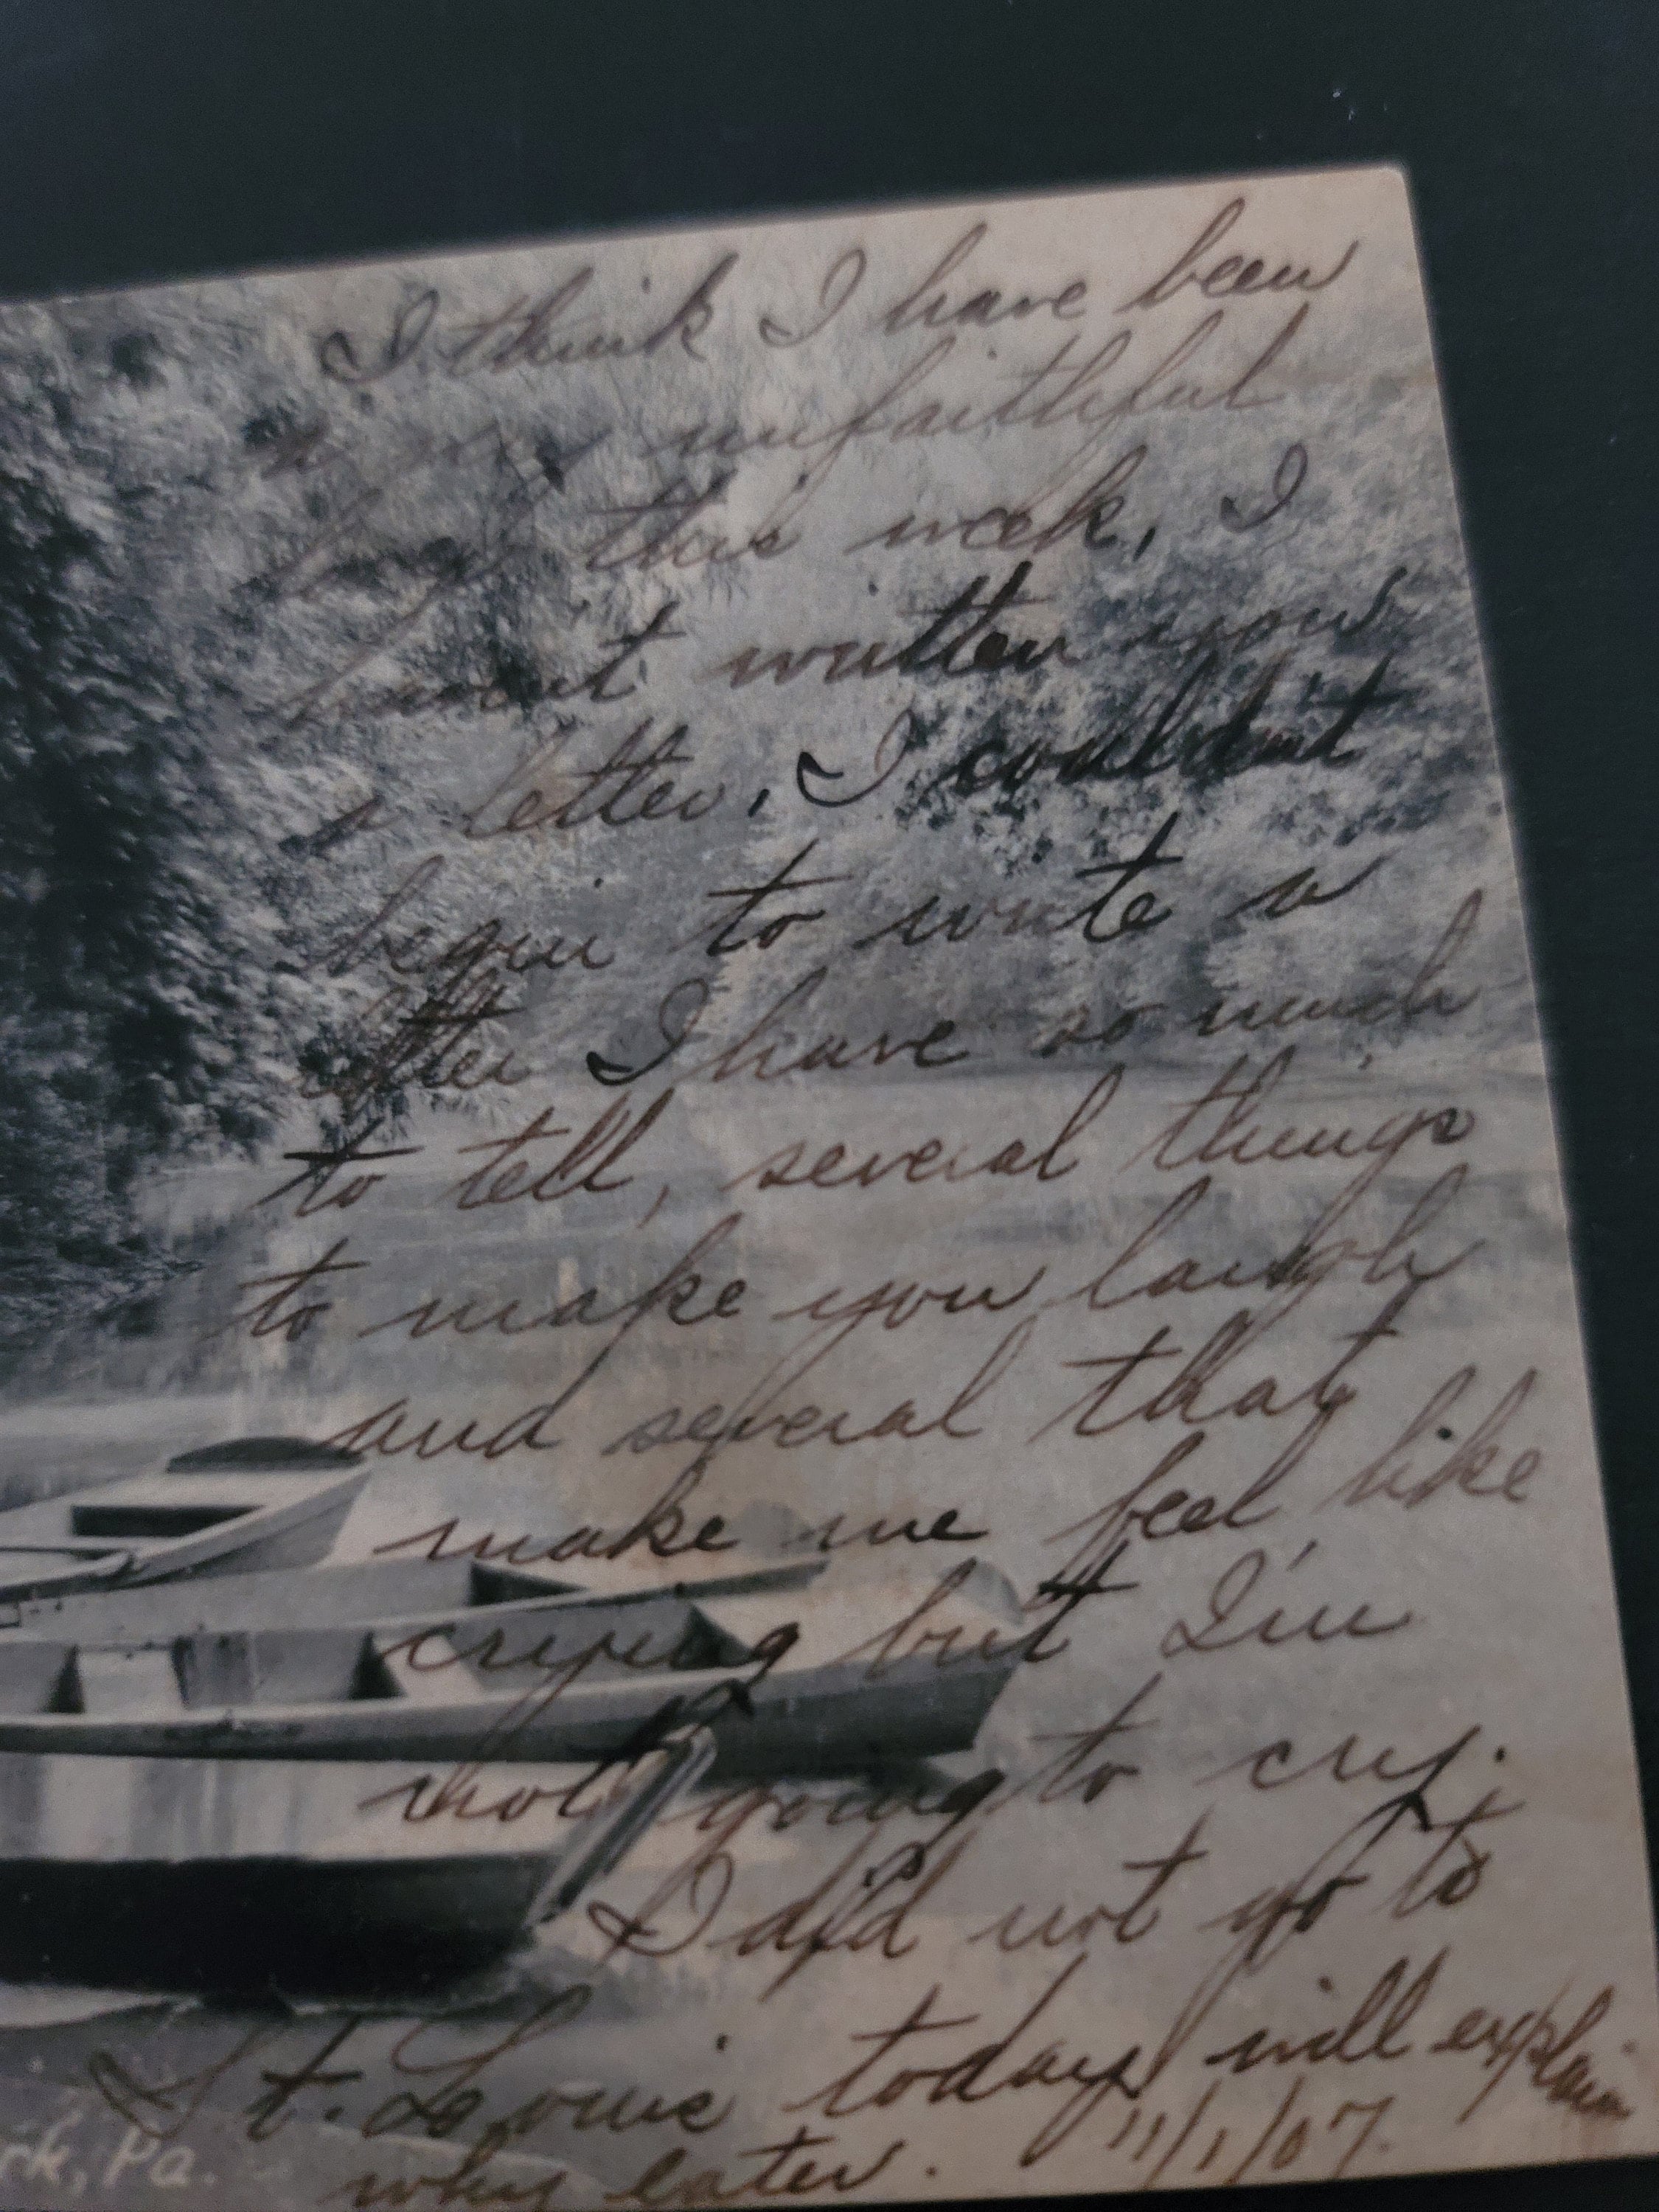 I think I have been
a very unfaithful
boy this week, I
havent written you
a letter, I couldn't
begin to write a
letter I have so much
to tell, several things
to make you laugh
and several that
make me feel like
crying but I'm
not going to cry.
I did not go to
St. Louis today will explain
why later. 11/1/07.
rk, Pa.